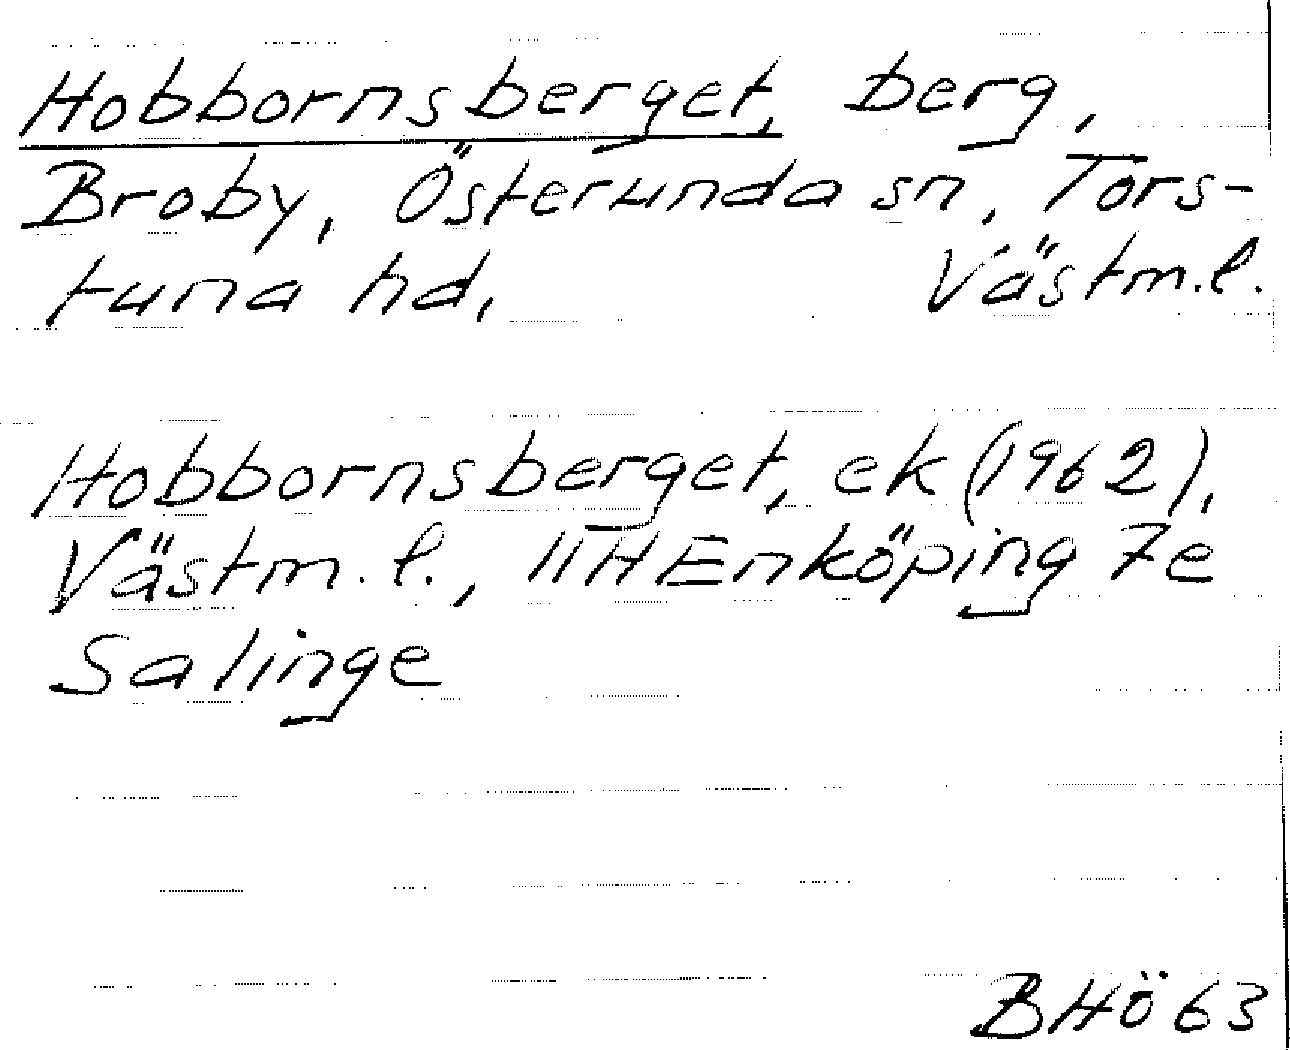 Hobbornsberget, berg,
Broby, Österunda sn, Tors-
tuna hd, Västm.l.
Hobbornsberget, ek (1962),
Västm.l., 11HEnköping 7e
Salinge
BHö 63